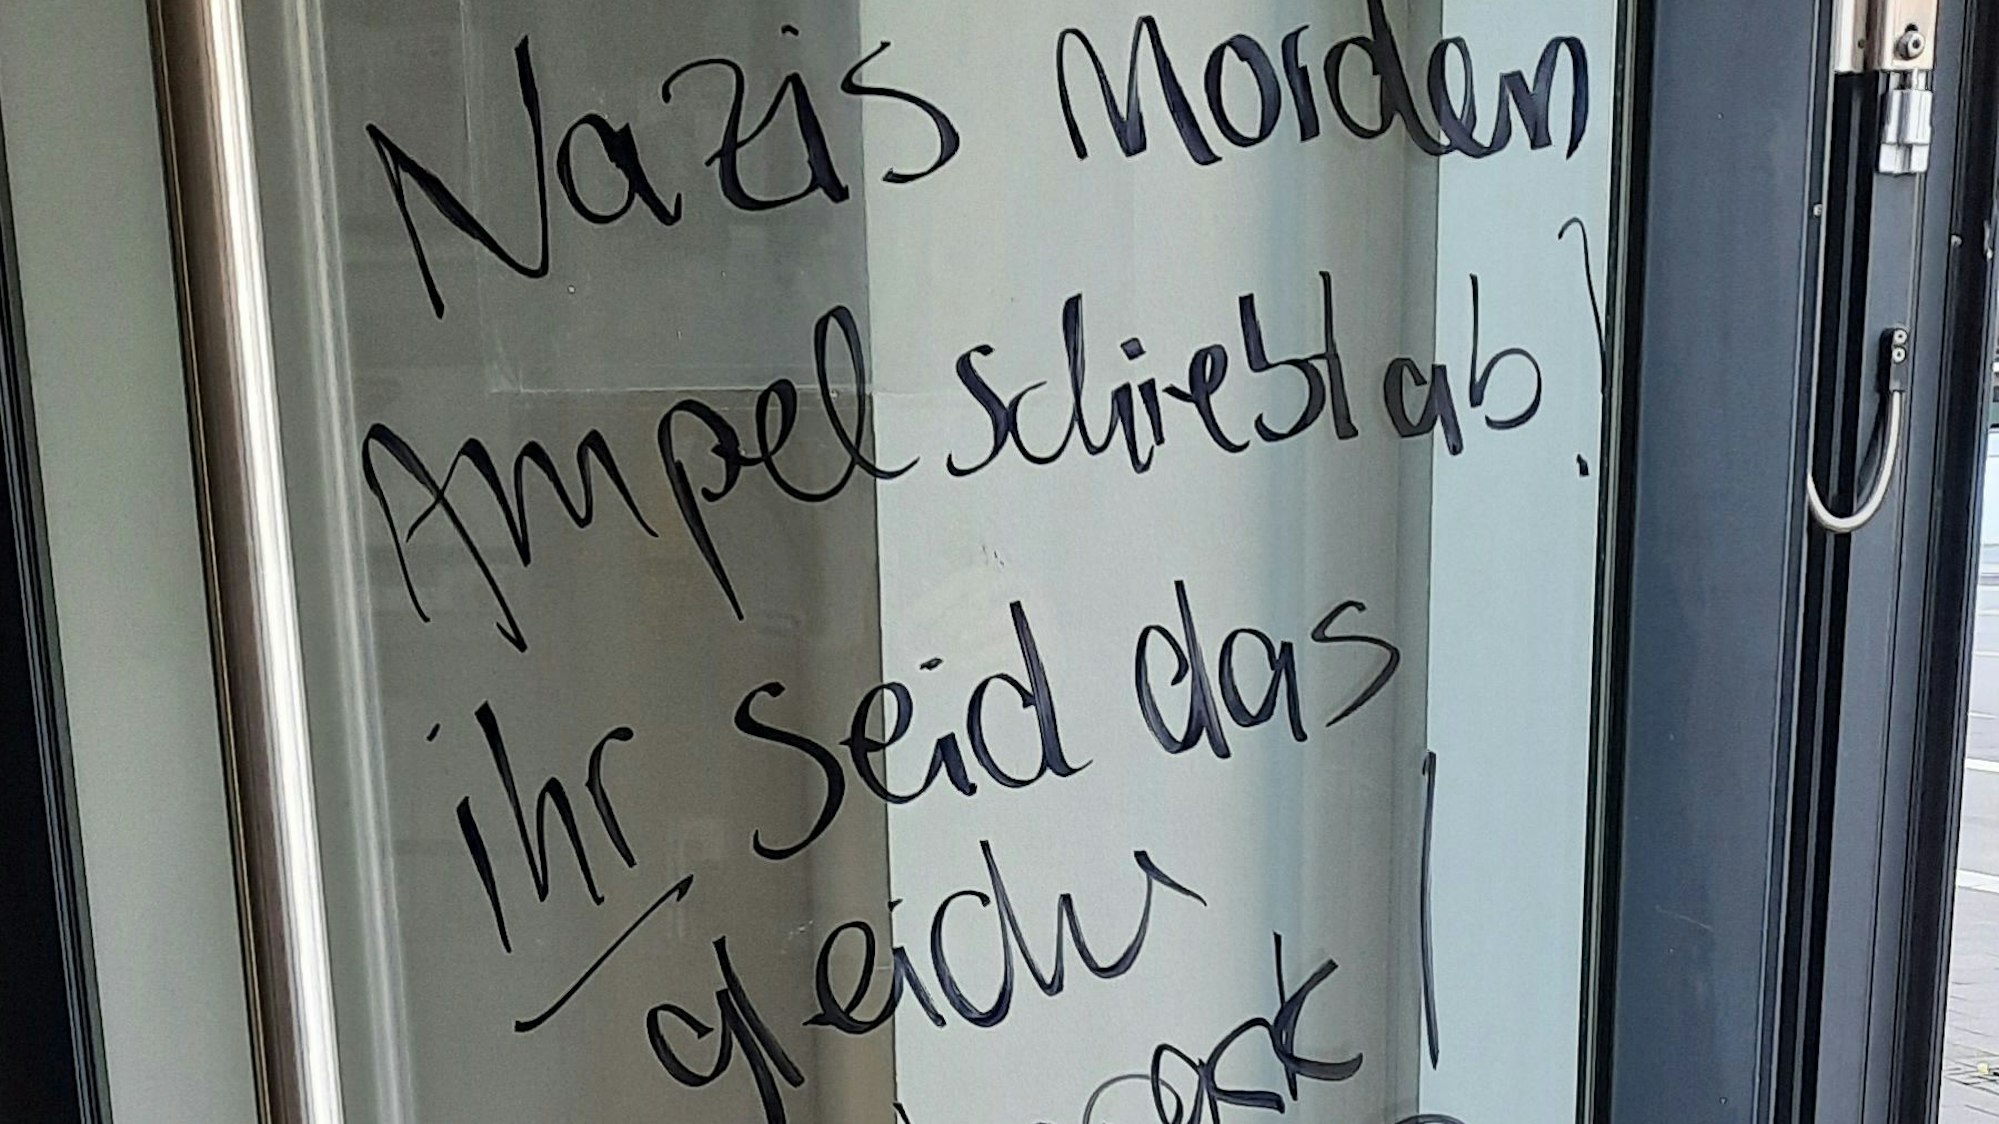 Nazis Morden
Ampel schiebt ab!
ihr seid das
gleiche